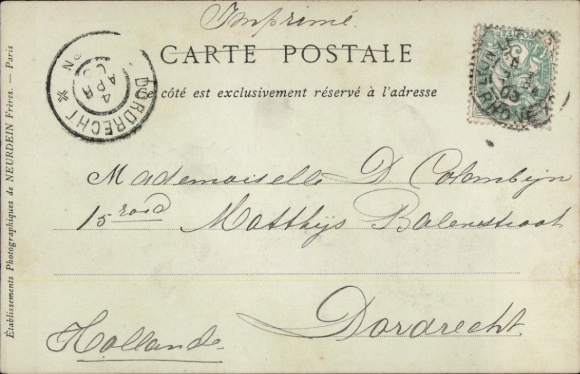 Imprimé
CARTE POSTALE
Ce côté est exclusivement réservé à l'adresse
DORDRECHT
4
APR
Mademoiselle D. Colombijn
15 rood Matthijs Balenstraat
Dordrecht
Hollande
Établissements Photographiques de NEURDEIN Frères. — Paris
RHONE